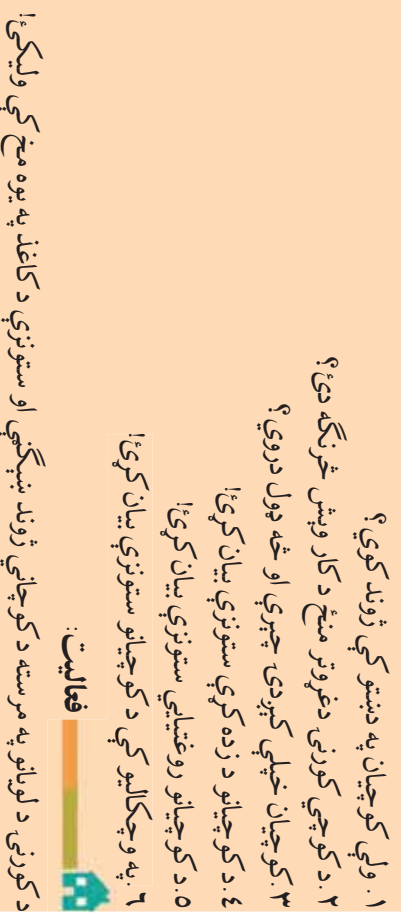 ۱. ولې کوچیان په دښتو کې ژوند کوي؟
۲. د کوچۍ کورنۍ دغړوتر منځ د کار ویش څرنګه دئ؟
۳. کوچیان خپلې کېږدۍ چېرې او څه ډول دروي؟
۴. د کوچیانو د زده کړې ستونزې بیان کړئ!
۵. د کوچیانو روغتیايي ستونزې بیان کړئ!
۶. په وچکالیو کې د کوچیانو ستونزې بیان کړئ!
فعالیت:
د کورنۍ د لویانو په مرسته د کوچاني ژوند ښېګڼې او ستونزې د کاغذ په یوه مخ کې ولیکئ!